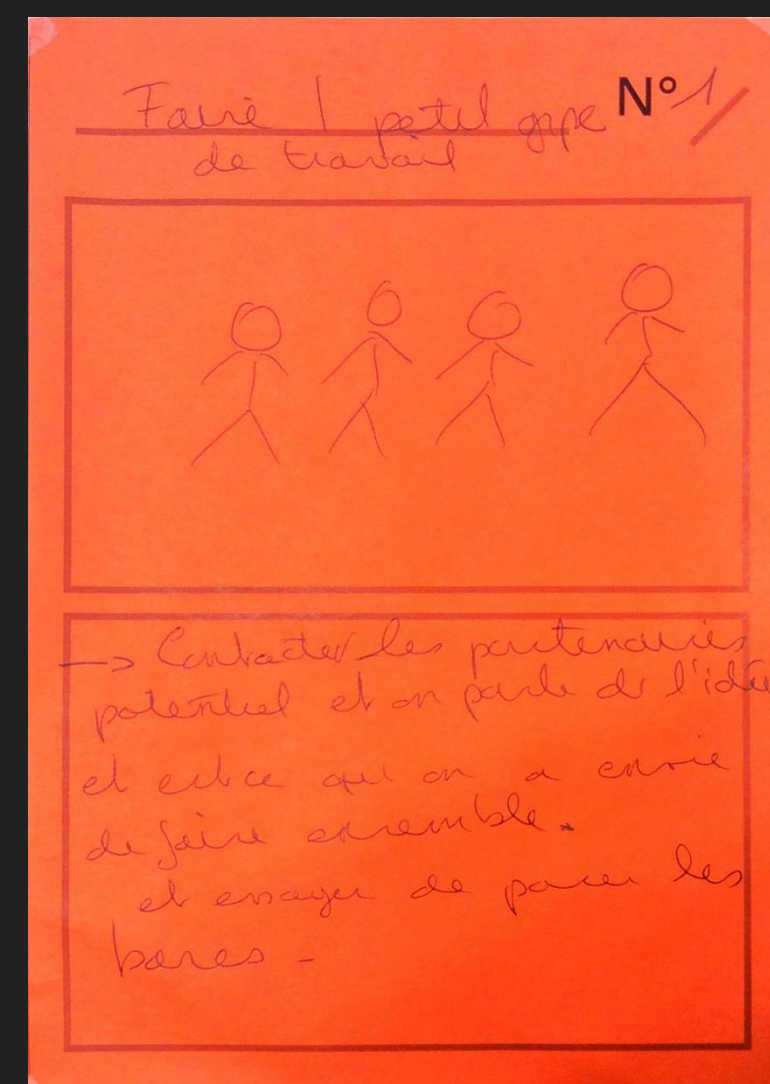 Faire 1 petit grpe N° 1
de travail
-> Contacter les partenaires
potentiel et on parle de l'idée
et est ce qu'on a envie
de faire ensemble.
et essayer de poser les
bases -